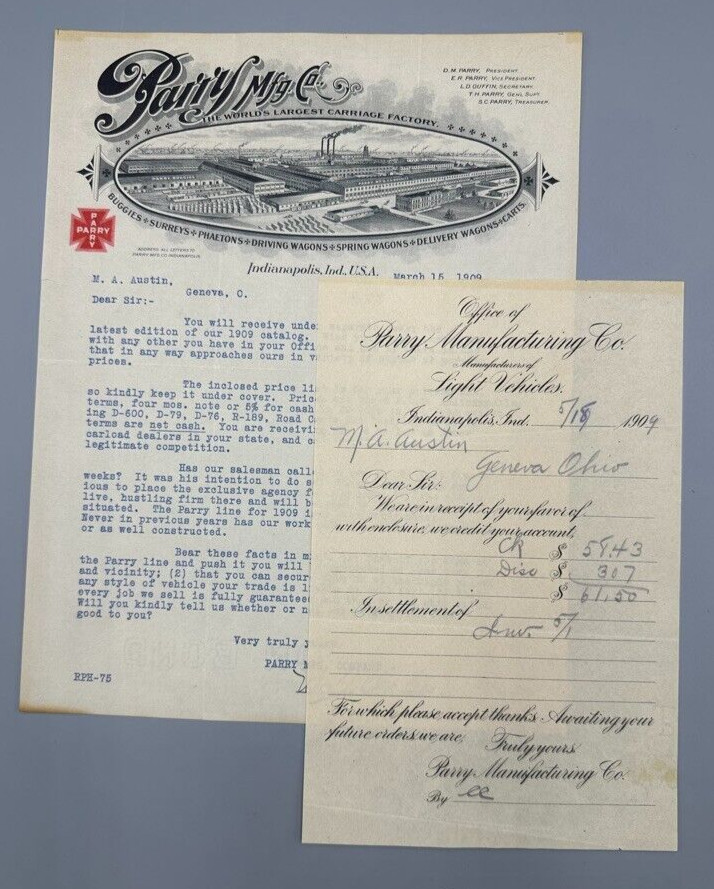 Parry Mfg. Co.,
THE WORLD'S LARGEST CARRIAGE FACTORY.
D.M. PARRY, PRESIDENT.
E.R. PARRY, VICE PRESIDENT.
L.D. GUFFIN, SECRETARY.
T.H. PARRY, GENL SUPT.
S.C. PARRY, TREASURER.
BUGGIES SURREYS PHAETONS DRIVING WAGONS SPRING WAGONS DELIVERY WAGONS CARTS.
PARRY
PARRY
ADDRESS ALL LETTERS TO
PARRY MFG CO INDIANAPOLIS.
Indianapolis, Ind., U.S.A. March 15, 1909
M. A. Austin,
Geneva, O.
Dear Sir:-
You will receive unde
latest edition of our 1909 catalog.
with any other you have in your Offi
that in any way approaches ours in v
prices.
The inclosed price li
so kindly keep it under cover. Pric
terms, four mos. note or 5% for cash
ing D-600, D-79, D-76, R-189, Road C
terms are net cash. You are receivi
carload dealers in your state, and c
legitimate competition.
Has our salesman calle
weeks? It was his intention to do s
ious to place the exclusive agency f
live, hustling firm there and will b
situated. The Parry line for 1909 i
Never in previous years has our work
or as well constructed.
Bear these facts in mi
the Parry line and push it you will
and vicinity; (2) that you can secur
any style of vehicle your trade is l
every job we sell is fully guarantee
Will you kindly tell us whether or n
good to you?
Very truly y
PARRY M
RPH-75
Office of
Parry Manufacturing Co.
Manufacturers of
Light Vehicles.
Indianapolis, Ind. 5/18 1909
M. A. Austin
Geneva Ohio
Dear Sir:
We are in receipt of your favor of
with enclosure, we credit your account,
Ck $ 58.43
Disc $ 307
$ 61.50
In settlement of
Inv. 5/1
For which please accept thanks. Awaiting your
future orders, we are, Truly yours,
Parry Manufacturing Co.
By